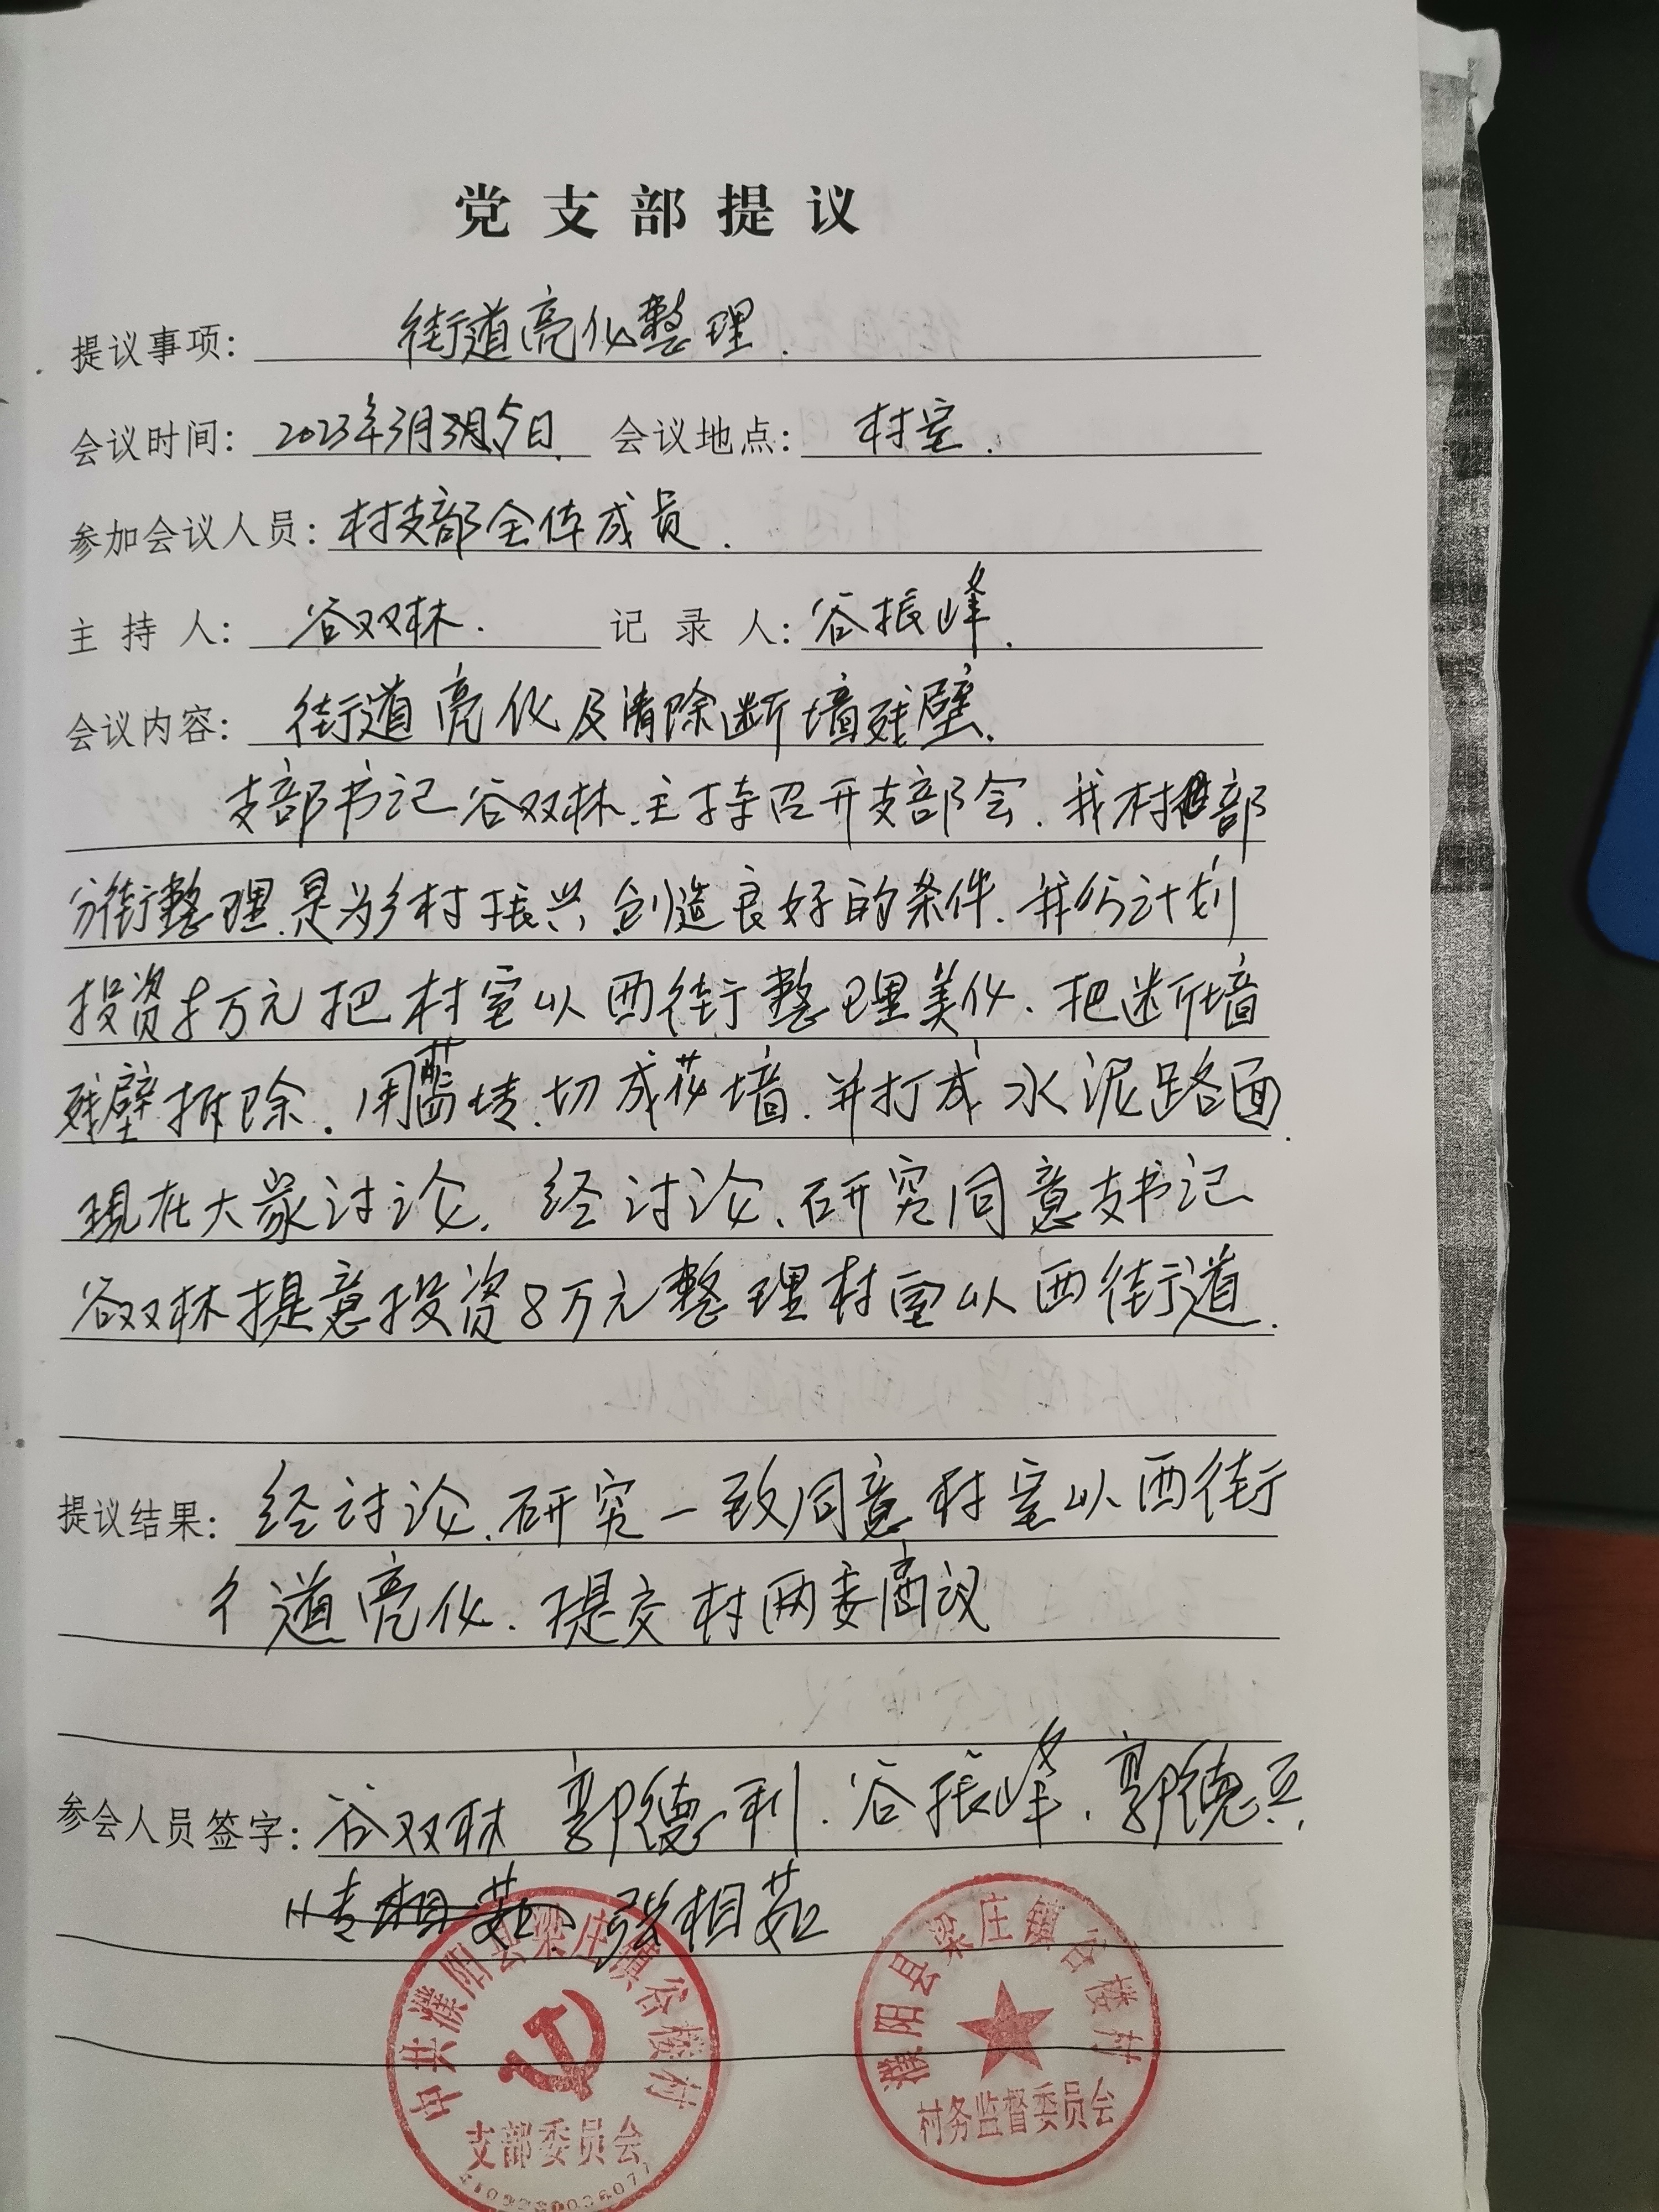 党支部提议
提议事项: 街道亮化整理.
会议时间: 2023年3月5日. 会议地点: 村室.
参加会议人员: 村支部全体成员.
主持人: 谷双林. 记录人: 谷振峰.
会议内容: 街道亮化及清除断墙残壁.
支部书记谷双林.主持召开支部会.我村部
分街整理.是为乡村振兴创造良好的条件.我们计划
投资8万元把村室以西街整理美化.把断墙
残壁拆除.用砖.切成花墙.并打成水泥路面.
现在大家讨论.经讨论.研究同意支书记
谷双林提意投资8万元整理村室以西街道.
提议结果: 经讨论.研究一致同意村室以西街
道亮化.提交村两委商议
参会人员签字: 谷双林 郭德利.谷振峰.郭德兵.
张相茹
中共濮阳县梁庄镇谷楼村
支部委员会
濮阳县梁庄镇谷楼村
村务监督委员会